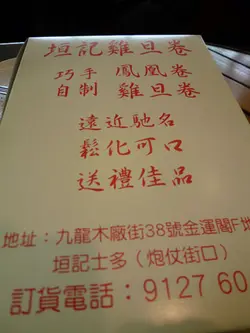 垣記雞旦卷
巧手 鳳凰卷
自制 雞旦卷
遠近馳名
鬆化可口
送禮佳品
地址：九龍木廠街38號金運閣F地
垣記士多（炮仗街口）
訂貨電話：9127 60